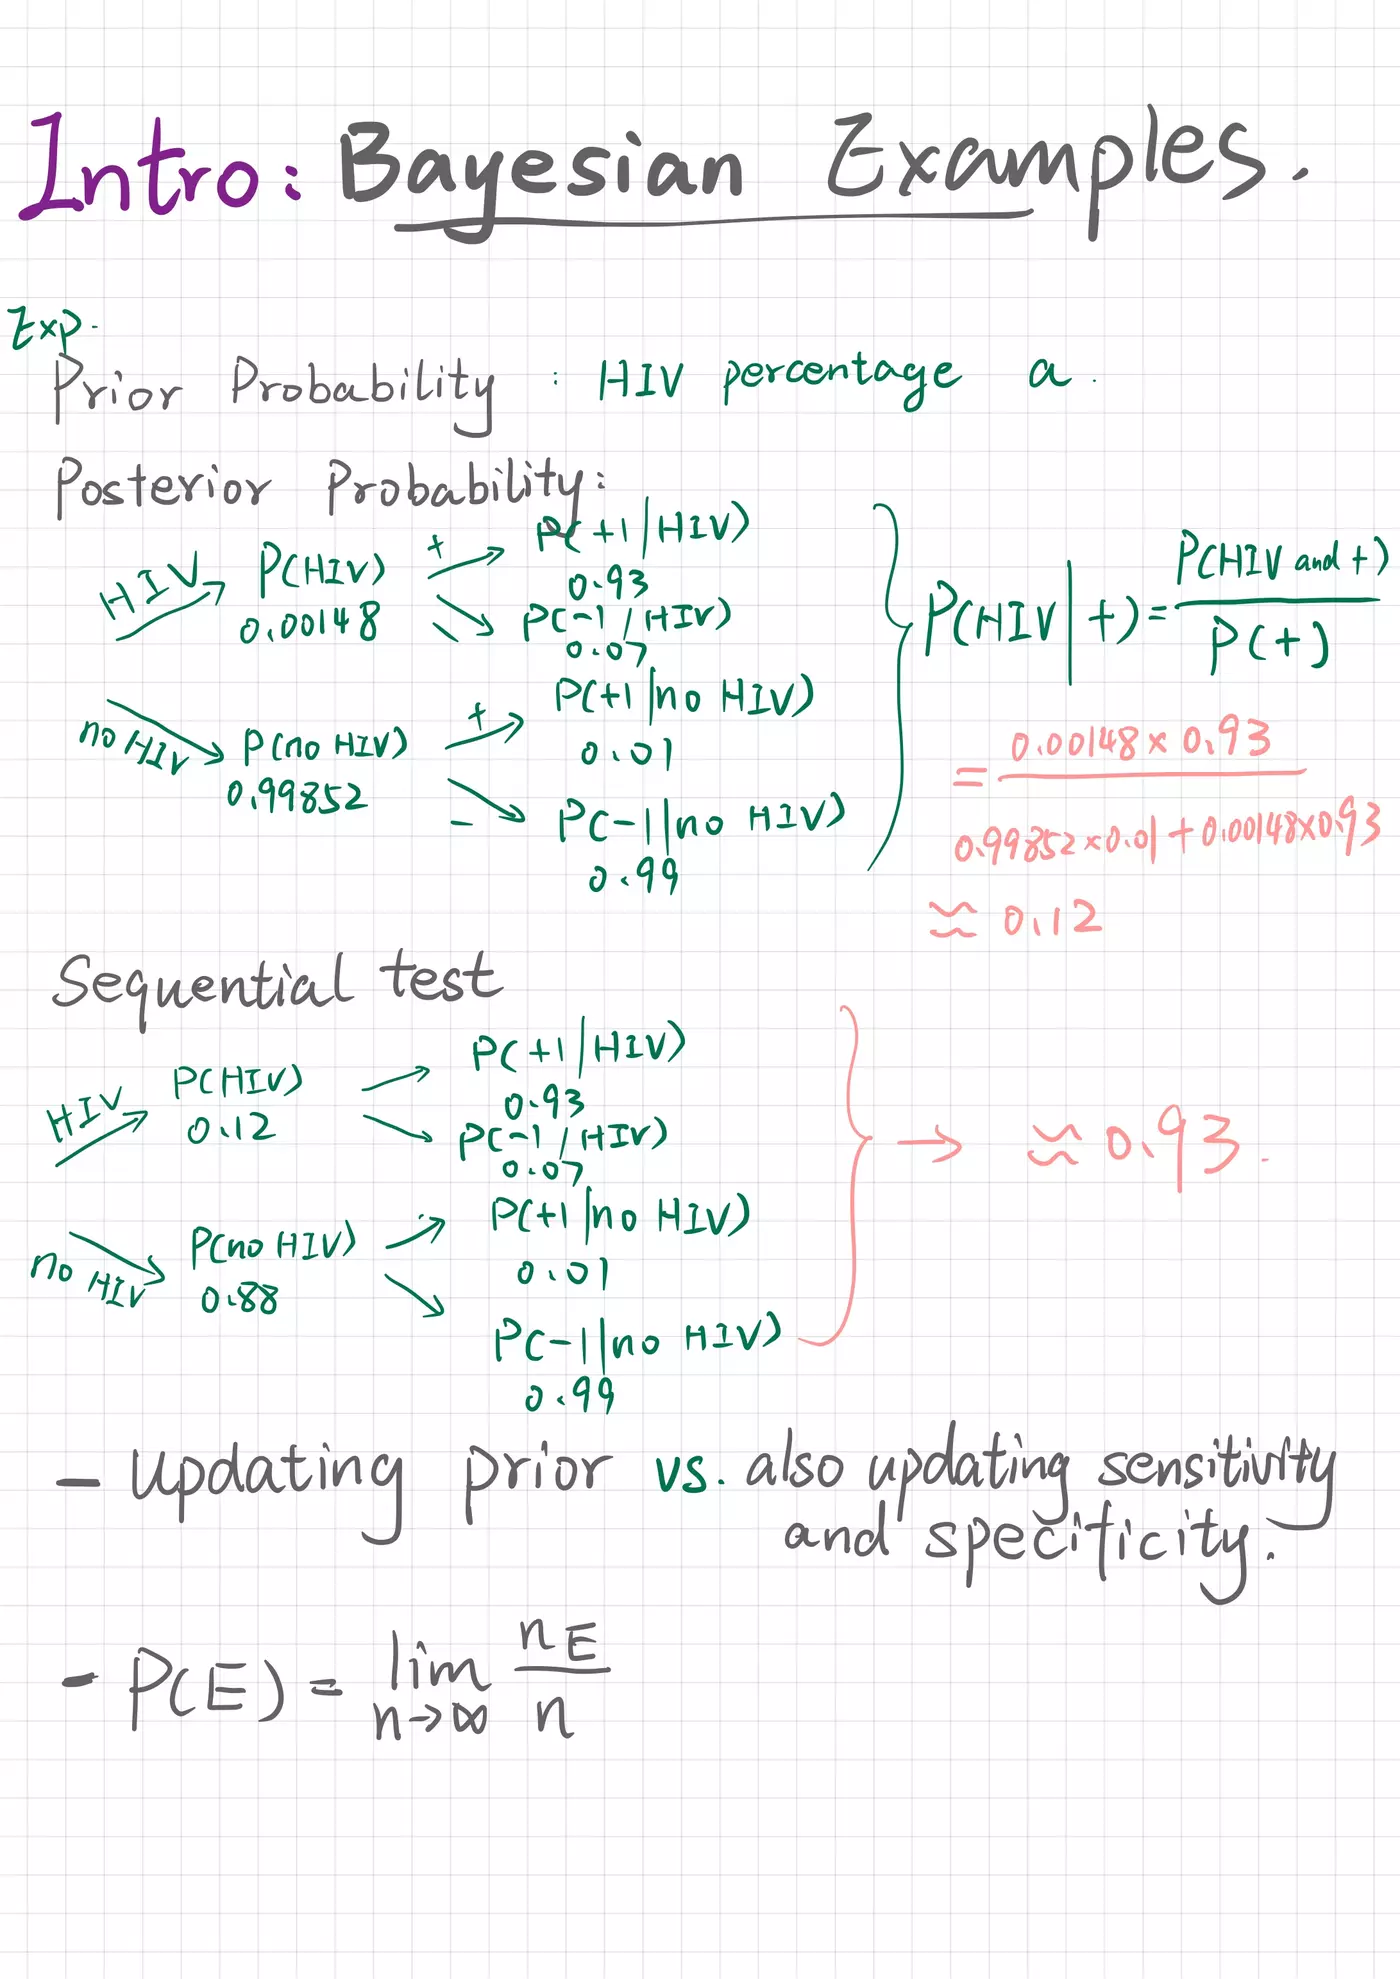 Intro: Bayesian Examples.
Exp.
Prior Probability : HIV percentage a.
Posterior Probability:
HIV P(HIV) + P(+1|HIV)
0.00148 0.93
P(-1/HIV)
0.07
no HIV P(no HIV) + P(+1|no HIV)
0.99852 0.01
- P(-1|no HIV)
0.99
P(HIV|+) = P(HIV and +)
P(+)
= 0.00148 × 0.93
0.99852×0.01+0.00148×0.93
≈ 0.12
Sequential test
HIV P(HIV) P(+1|HIV)
0.12 0.93
P(-1/HIV)
0.07
no HIV P(no HIV) P(+1|no HIV)
0.88 0.01
P(-1|no HIV)
0.99
→ ≈ 0.93.
- Updating prior vs. also updating sensitivity
and specificity.
- P(E) = lim nE
n→∞ n